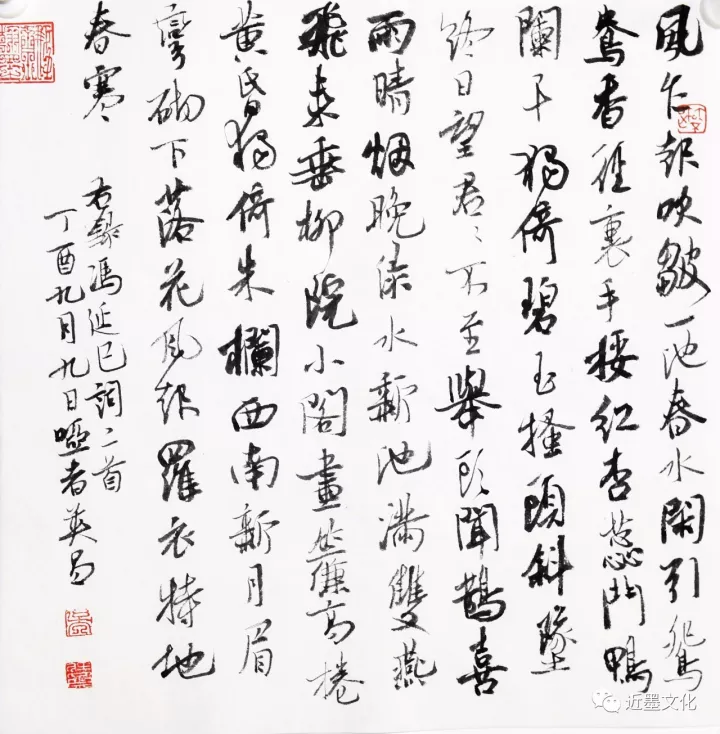 風乍起吹皺一池春水閑引鴛
鴦香徑裏手挼紅杏蕊鬥鴨
闌干獨倚碧玉搔頭斜墜
終日望君々不至舉頭聞鵲喜
雨晴烟晚綠水新池滿雙燕
飛來垂柳院小閣畫簾高捲
黃昏獨倚朱欄西南新月眉
彎砌下落花風起羅衣特地
春寒
右錄馮延巳詞二首
丁酉九月九日啞者英
近墨文化